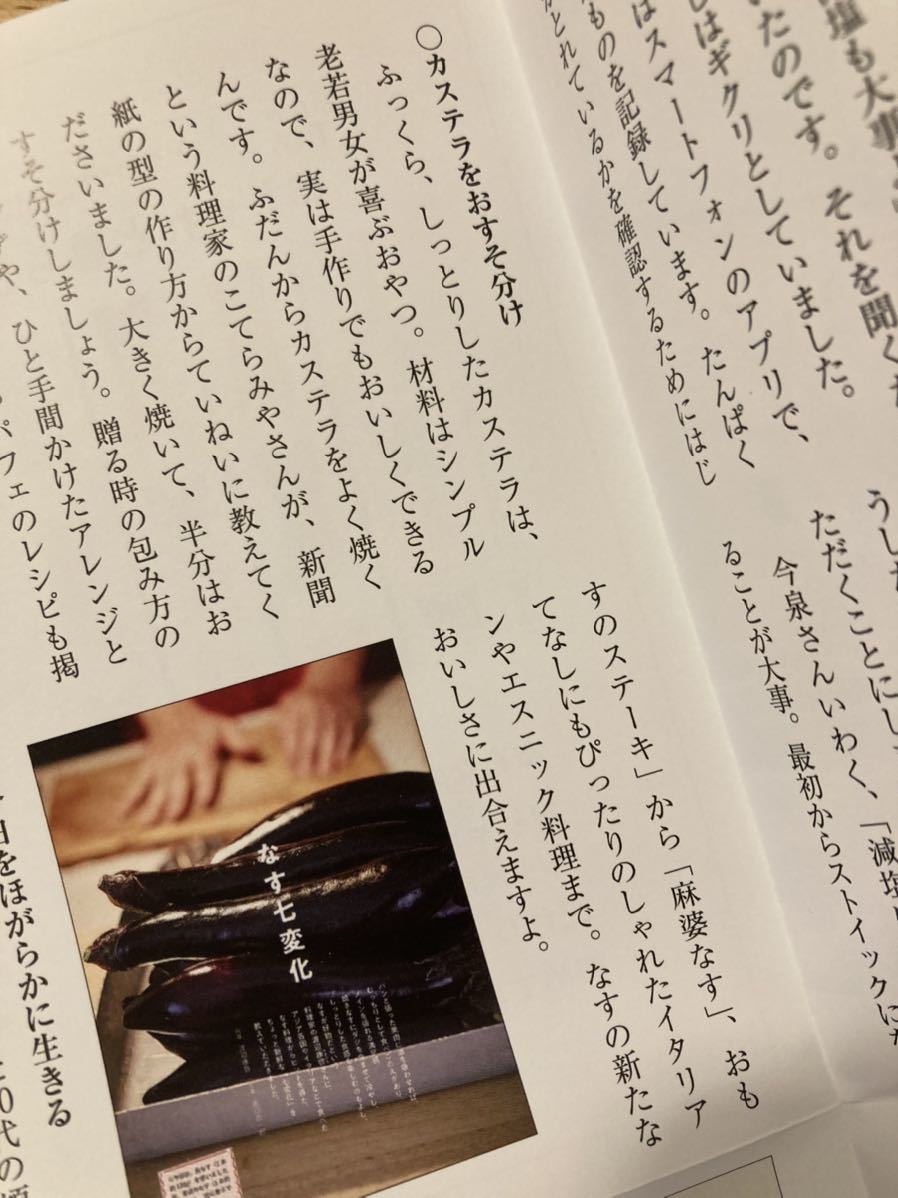 塩も大事
たのです。それを聞くた
しはギクリとしていました。
はスマートフォンのアプリで、
ものを記録しています。たんぱく
かとれているかを確認するためにはじ
〇カステラをおすそ分け
ふっくら、しっとりしたカステラは、
老若男女が喜ぶおやつ。材料はシンプル
なので、実は手作りでもおいしくできる
んです。ふだんからカステラをよく焼く
という料理家のこてらみやさんが、新聞
紙の型の作り方からていねいに教えてく
ださいました。大きく焼いて、半分はお
すそ分けしましょう。贈る時の包み方の
や、ひと手間かけたアレンジと
パフェのレシピも掲
うした
ただくことにし
今泉さんいわく、「減塩
ることが大事。最初からストイックに
すのステーキ」から「麻婆なす」、おも
てなしにもぴったりのしゃれたイタリア
ンやエスニック料理まで。なすの新たな
おいしさに出合えますよ。
なす七変化
をほがらかに生きる
0代の